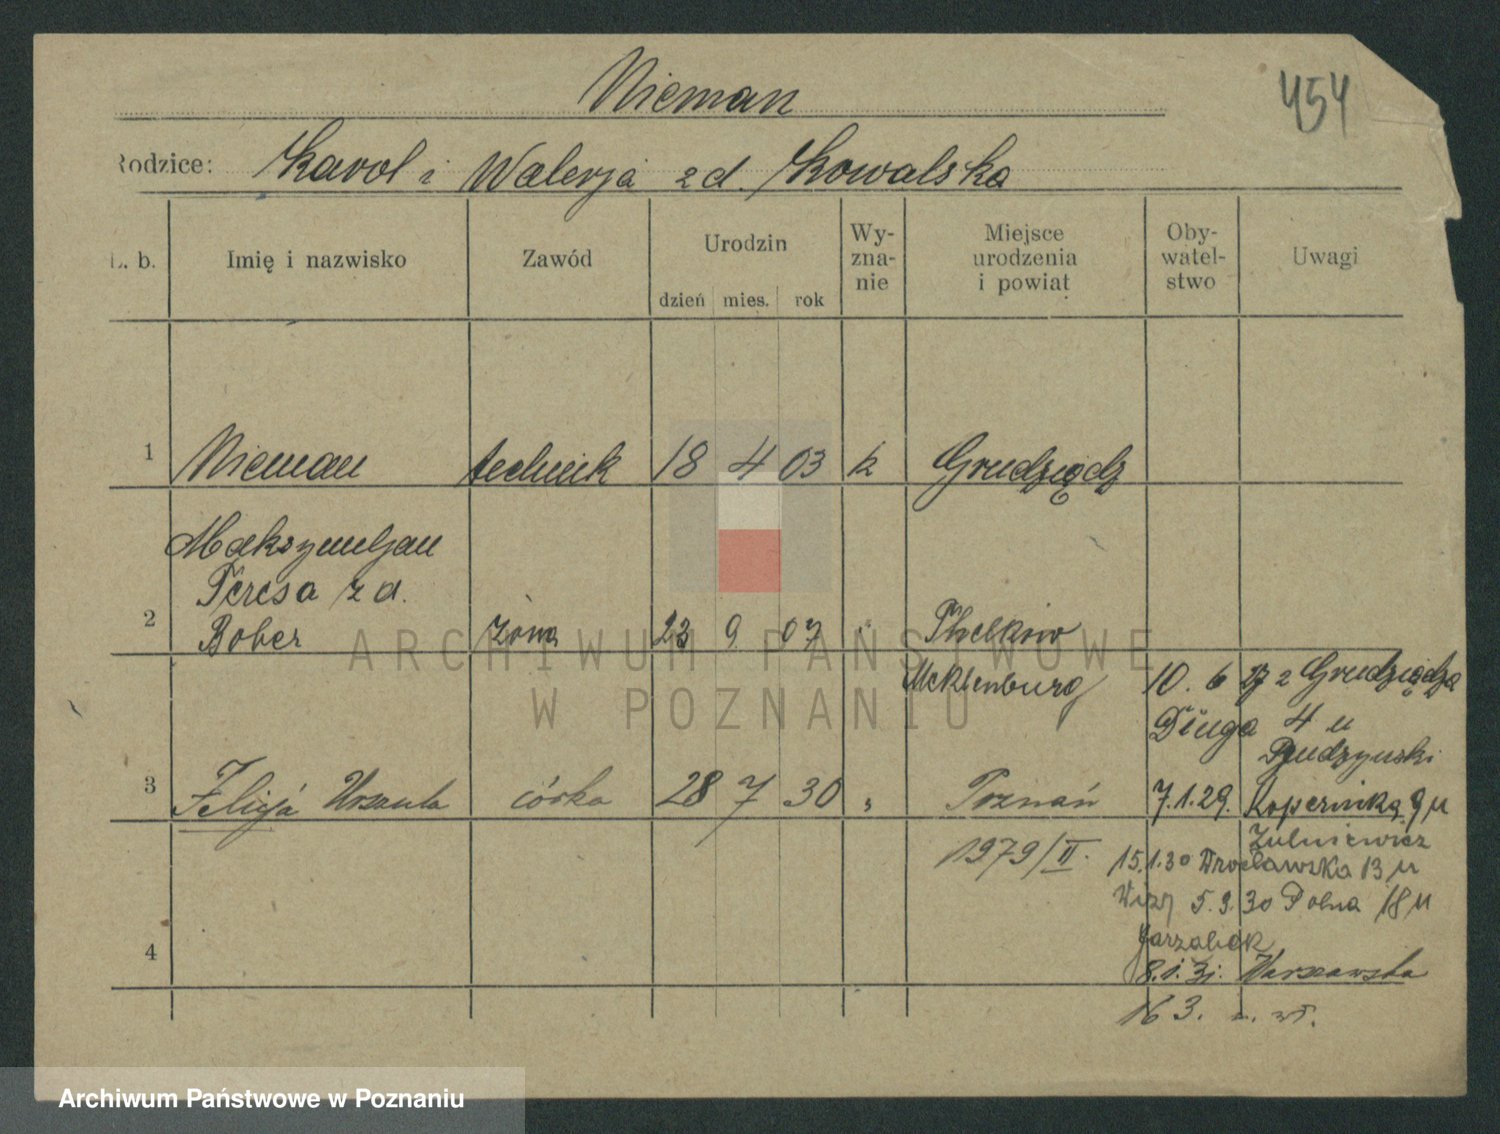 Nieman
454
Rodzice: Karol i Walerja zd. Kowalska
L. b. Imię i nazwisko Zawód Urodzin dzień mies. rok Wy-zna-nie Miejsce urodzenia i powiat Oby-watel-stwo Uwagi
1 Nieman technik 18 4 03 k Grudziądz
Maksymiljan
Teresa zd.
2 Bober żona 23 9 07 " Thelkow
Meklenburg 10. 6 27 z Grudziądza
Długa 4 u
Budzyński
3 Felicja Urszula córka 28 7 30 " Poznań 7.1.29. Kopernika 9 u
1979/II.
15.1.30 Wrocławska 13 u
5.9.30 Polna 18 u
4
8.1.31. Warszawska
163.
ARCHIWUM PAŃSTWOWE
W POZNANIU
Archiwum Państwowe w Poznaniu